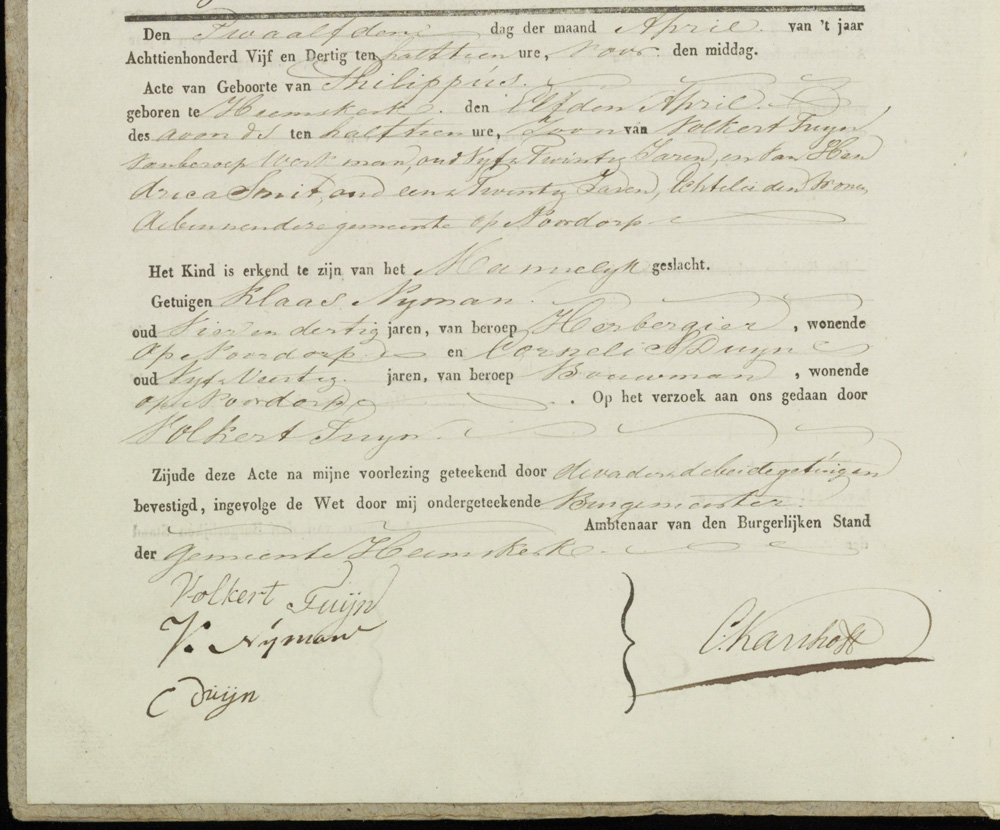 Den Twaalfden dag der maand April van 't jaar
Achttienhonderd Vijf en Dertig ten halftien ure, voor den middag.
Acte van Geboorte van Philippus.
geboren te Heemskerk. den Elfden April.
des avonds ten halftien ure, Zoon van Volkert Tuyn,
van beroep Werkman, oud Vyf & Twintig Jaren, en van Hen
drica Smit, oud een & Twintig Jaren, Echtelieden Wonen
de binnen deze gemeente op Noordorp
Het Kind is erkend te zijn van het Mannelyk geslacht.
Getuigen Klaas Nyman.
oud Vier en dertig jaren, van beroep Herbergier, wonende
op Noordorp en Cornelis Duyn
oud Vyf & Veertig jaren, van beroep Bouwman, wonende
op Noordorp. Op het verzoek aan ons gedaan door
Volkert Tuyn.
Zijude deze Acte na mijne voorlezing geteekend door de vader & de beide getuigen
bevestigd, ingevolge de Wet door mij ondergeteekende Burgemeester.
Ambtenaar van den Burgerlijken Stand
der gemeente Heemskerk.
Volkert Tuijn
K. Nyman
C Duijn